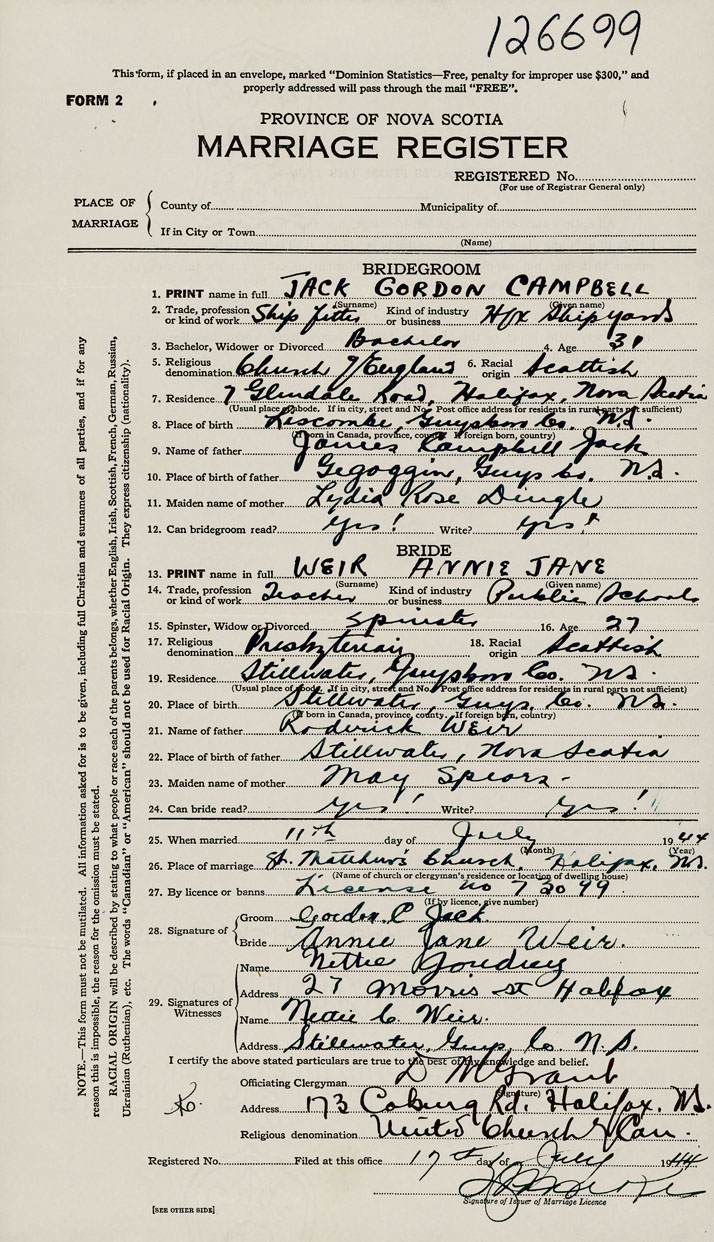 126699
This form, if placed in an envelope, marked "Dominion Statistics—Free, penalty for improper use $300," and
properly addressed will pass through the mail "FREE".
FORM 2
PROVINCE OF NOVA SCOTIA
MARRIAGE REGISTER
REGISTERED No.
(For use of Registrar General only)
PLACE OF MARRIAGE
County of Municipality of
If in City or Town
(Name)
BRIDEGROOM
1. PRINT name in full JACK GORDON CAMPBELL
(Surname) (Given name)
2. Trade, profession or kind of work Ship fitter Kind of industry or business Hfx Shipyards
3. Bachelor, Widower or Divorced Bachelor 4. Age 31
5. Religious denomination Church of England 6. Racial origin Scottish
7. Residence 7 Glendale Road, Halifax, Nova Scotia
(Usual place of abode. If in city, street and No. Post office address for residents in rural parts not sufficient)
8. Place of birth Liscombe, Guysboro Co. N.S.
(If born in Canada, province, county. If foreign born, country)
9. Name of father James Campbell Jack
10. Place of birth of father Gegoggin, Guys Co. N.S.
11. Maiden name of mother Lydia Rose Dingle
12. Can bridegroom read? Yes! Write? Yes!
BRIDE
13. PRINT name in full WEIR ANNIE JANE
(Surname) (Given name)
14. Trade, profession or kind of work Teacher Kind of industry or business Public Schools
15. Spinster, Widow or Divorced Spinster 16. Age 27
17. Religious denomination Presbyterian 18. Racial origin Scottish
19. Residence Stillwater, Guysboro Co. N.S.
(Usual place of abode. If in city, street and No. Post office address for residents in rural parts not sufficient)
20. Place of birth Stillwater, Guys. Co. N.S.
(If born in Canada, province, county. If foreign born, country)
21. Name of father Roderick Weir
22. Place of birth of father Stillwater, Nova Scotia
23. Maiden name of mother May Spears -
24. Can bride read? Yes! Write? Yes!
25. When married 11th day of July 1944
(Month) (Year)
26. Place of marriage St. Matthew's Church, Halifax, N.S.
(Name of church or clergyman's residence or location of dwelling house)
27. By licence or banns License no 72099
(If by licence, give number)
28. Signature of
Groom Gordon C Jack
Bride Annie Jane Weir.
29. Signatures of Witnesses
Name Nettie Goudrey
Address 27 Morris St Halifax
Name Nettie C. Weir.
Address Stillwater, Guys. Co N.S.
I certify the above stated particulars are true to the best of my knowledge and belief.
Officiating Clergyman D M Grant
(Signature)
Address 173 Coburg Rd. Halifax, N.S.
Religious denomination United Church of Can.
Registered No. Filed at this office 17th day of July 1944
Signature of Issuer of Marriage Licence
[SEE OTHER SIDE]
NOTE.—This form must not be mutilated. All information asked for is to be given, including full Christian and surnames of all parties, and if for any
reason this is impossible, the reason for the omission must be stated.
RACIAL ORIGIN will be described by stating to what people or race each of the parents belongs, whether English, Irish, Scottish, French, German, Russian,
Ukrainian (Ruthenian), etc. The words "Canadian" or "American" should not be used for Racial Origin. They express citizenship (nationality).